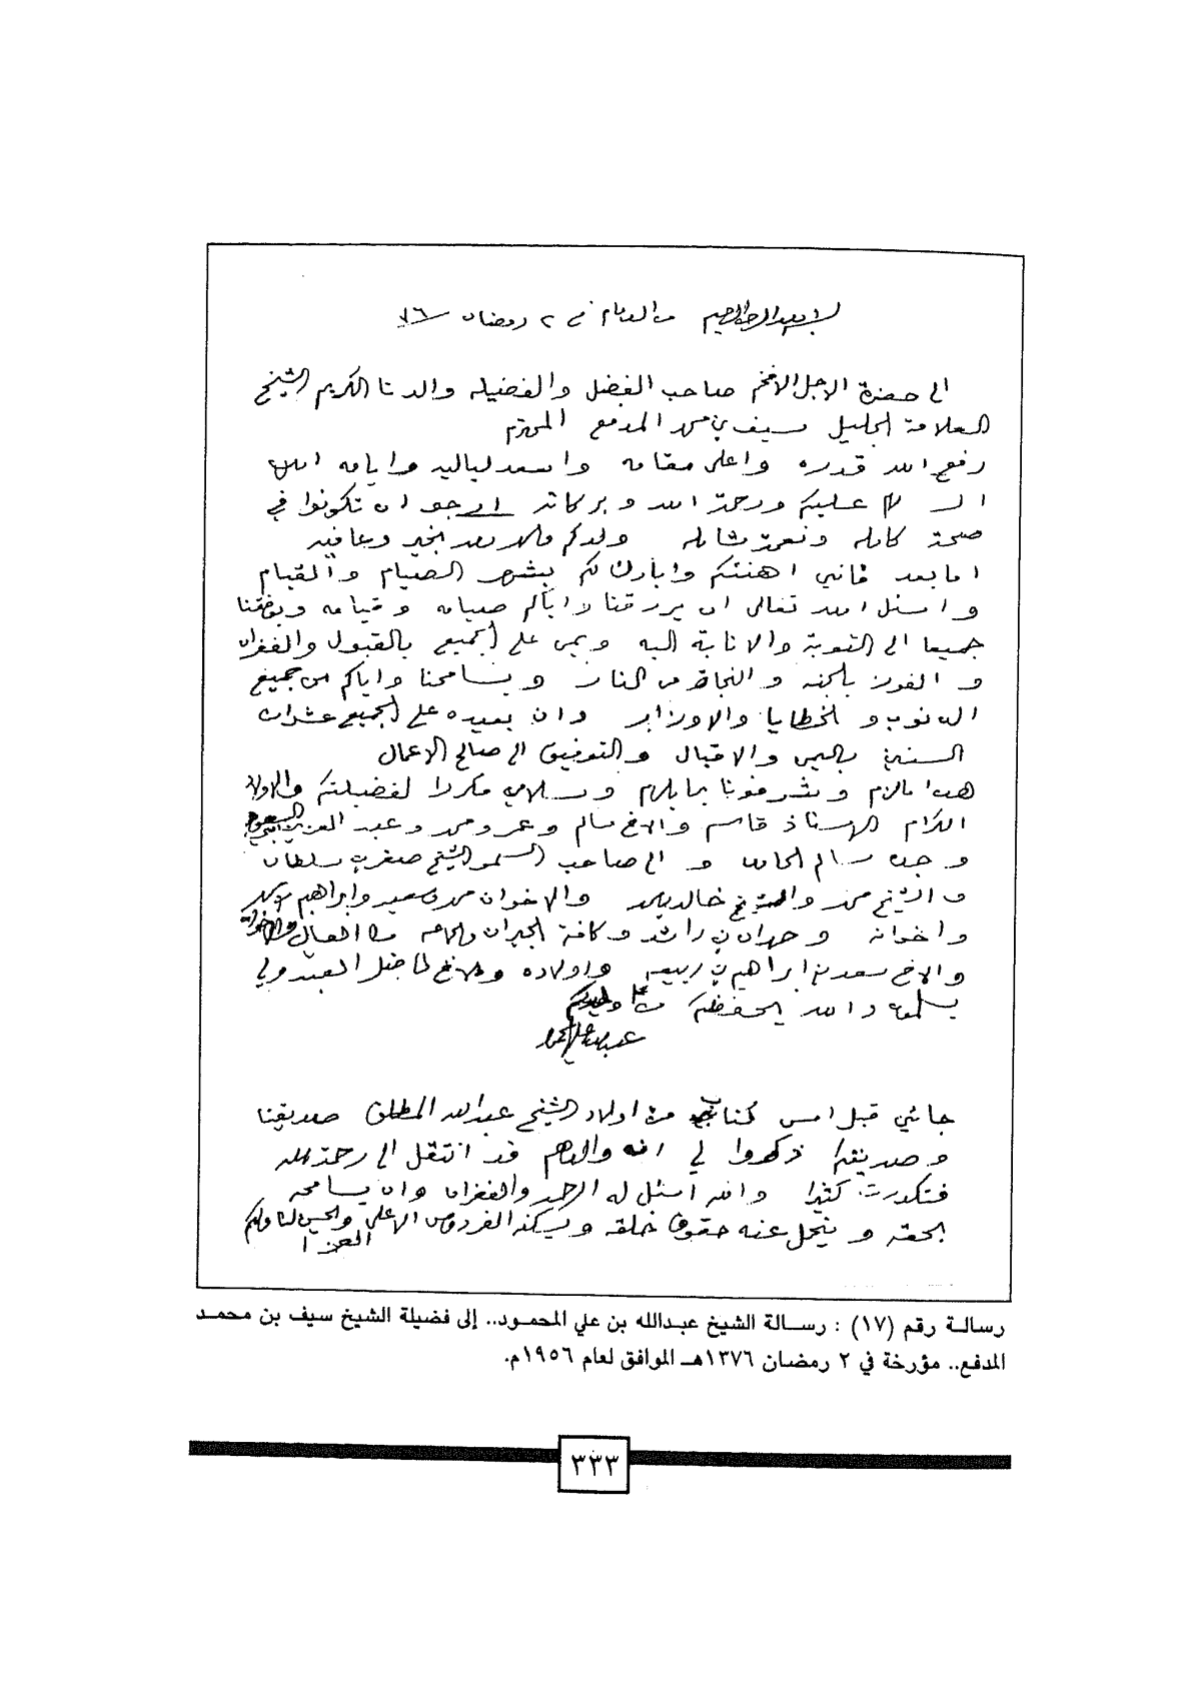 بسم الله الرحمن الرحيم من الدمام في ٢ رمضان ٧٦
الى حضرة الاجل الافخم صاحب الفضل والفضيله والدنا الكريم الشيخ
العلامة الجليل سيف بن محمد المدفع المحترم
رفع الله قدره واعلى مقامه واسعد لياليه وايامه امين
السلام عليكم ورحمة الله وبركاته ارجو ان تكونوا في
صحة كامله ونعمة شامله ولدكم والحمد لله بخير وعافيه
اما بعد فاني اهنئكم وابارك لكم بشهر الصيام والقيام
واسئل الله تعالى ان يرزقنا واياكم صيامه وقيامه ويوفقنا
جميعا الى التوبة والانابة اليه ويمن على الجميع بالقبول والغفران
و الفوز بالجنه و النجاة من النار ويسامحنا واياكم من جميع
الذنوب و الخطايا والاوزار وان يعيده على الجميع عشرات
السنين باليمن والاقبال والتوفيق الى صالح الاعمال
هذا مالزم وشرفونا بما يلزم وسلامي مكررا لفضيلتكم والاولاد
الكرام الاستاذ قاسم والاخ سالم وعمر ومحمد وعبد العزيز
و سالم و الى صاحب السمو الشيخ صقر بن سلطان
والشيخ محمد والشيخ خالد والاخوان محمد وسعيد وابراهيم
واخوانه و بن راشد وكافة الجيران والجماعه من العيال والاخوان
والاخ سعد بن ابراهيم بن ربيعه واولاده والاخ فاضل
يسلمون والله يحفظكم ولدكم
عبدالله علي المحمود
جائني قبل امس كتاب من اولاد الشيخ عبدالله المطلق صديقنا
وصديقكم ذكروا لي انه والدهم قد انتقل الى رحمة الله
فتكدرت كثيرا والله اسئل له الرحمة والغفران وان يسامحه
بحقه و يتحمل عنه حقوق خلقه ويسكنه الفردوس الاعلى ويحسن لنا ولكم
العزا
رسالة رقم (١٧) : رسـالة الشيخ عبـدالله بن علي المحمـود.. إلى فضيلة الشيخ سيف بن محمـد
المدفع.. مؤرخة في ٢ رمضان ١٣٧٦هـ الموافق لعام ١٩٥٦م.
٣٣٣